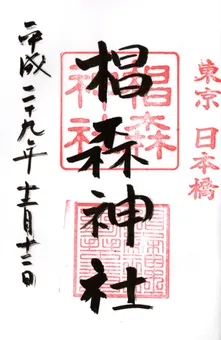 東京 日本橋
椙森神社
椙森神社
平成二十九年十二月十三日